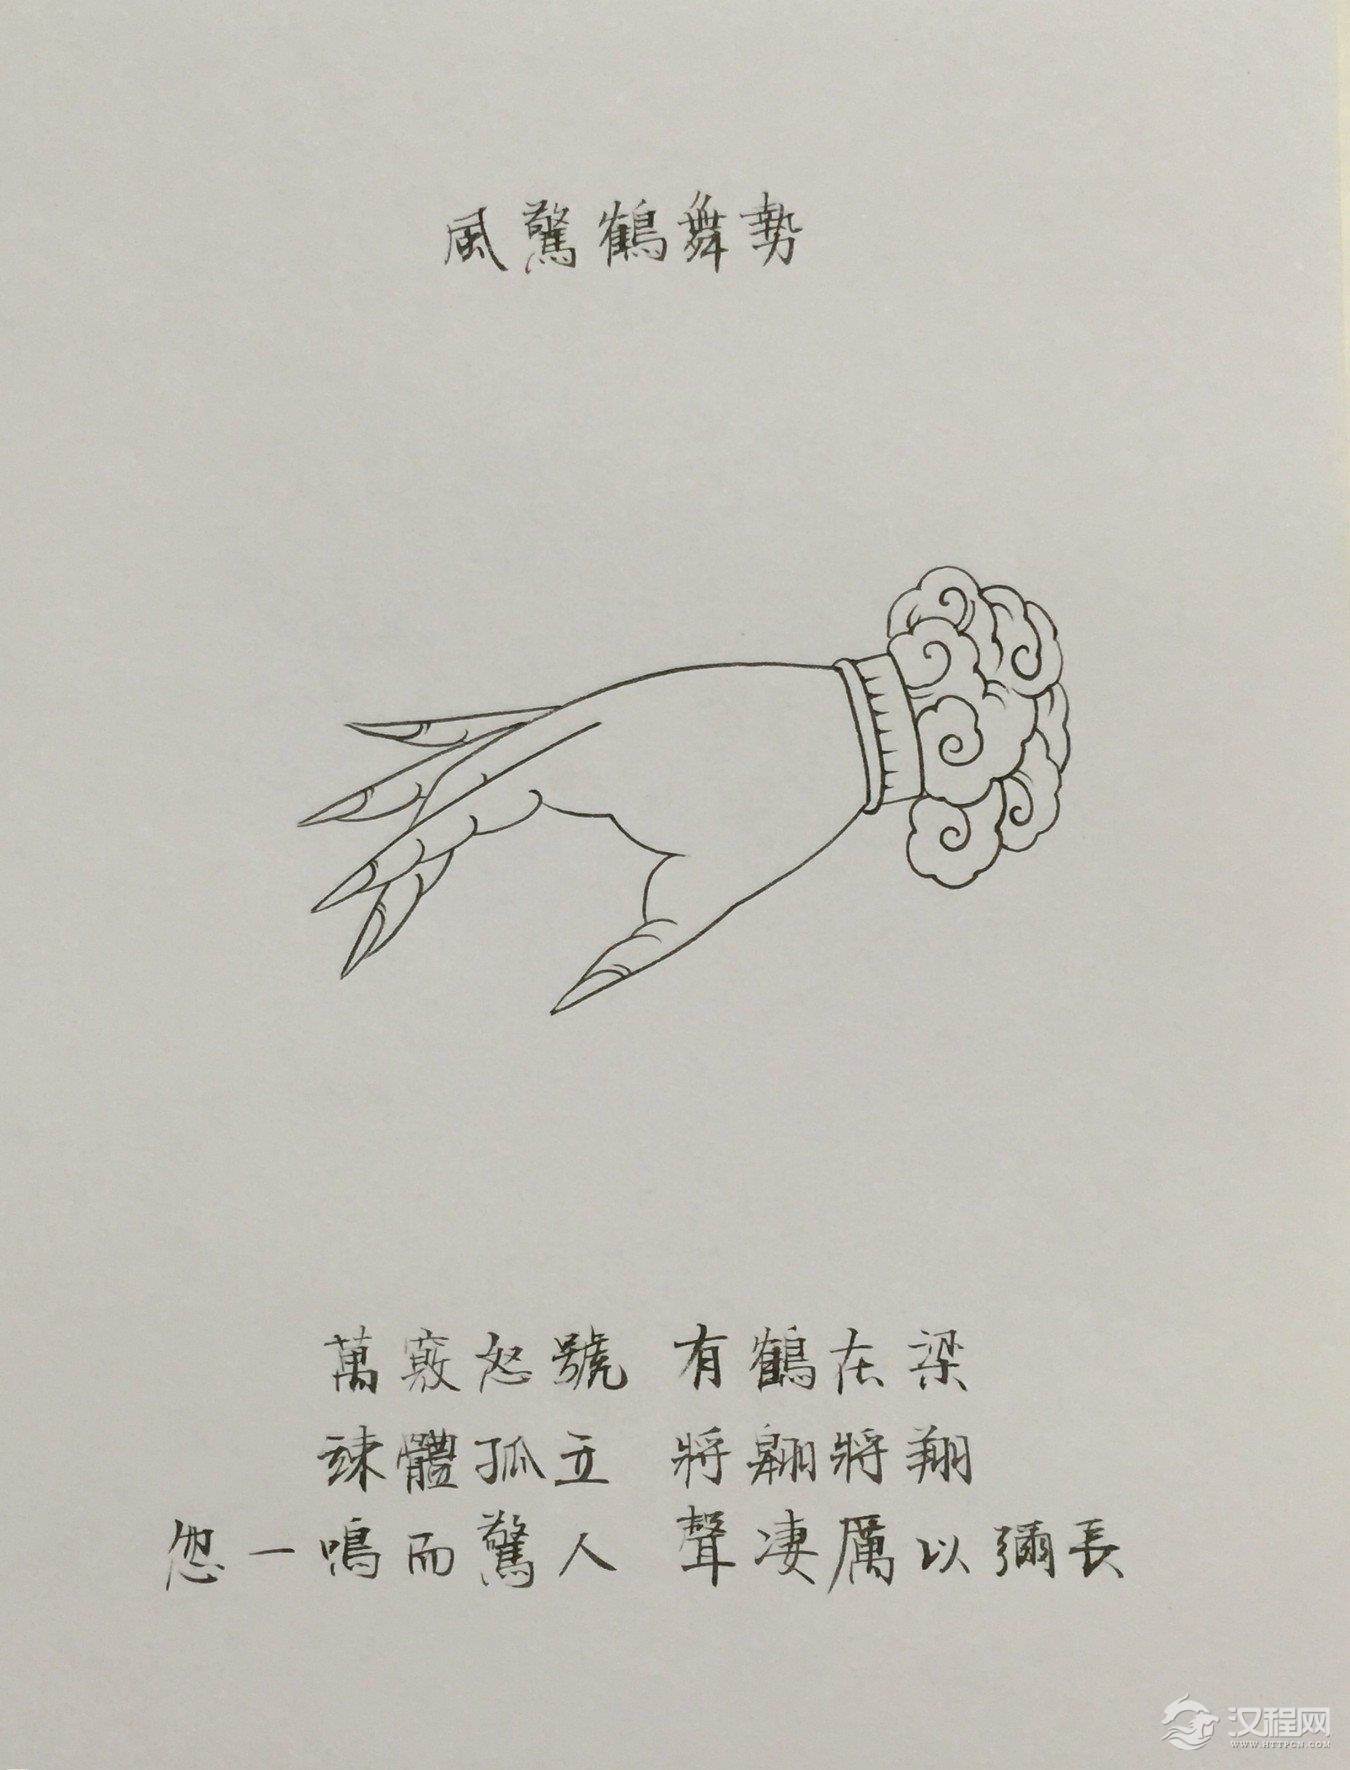 風驚鶴舞勢
萬竅怒號 有鶴在梁
竦體孤立 將翺將翔
怨一鳴而驚人 聲凄厲以彌長
汉程网
WWW.HTTPCN.COM